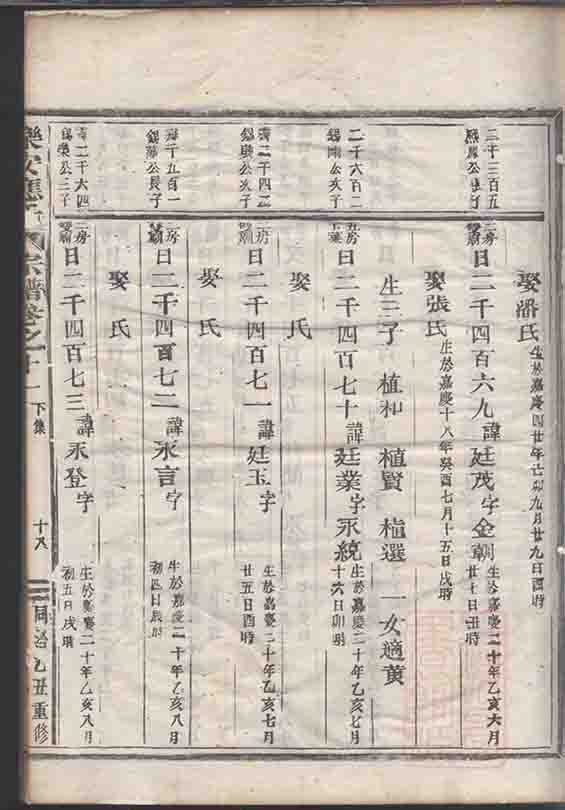 娶潘氏 生於嘉慶四廿年己卯九月廿九日酉時
二千三百五
熙
公
子
二房
日二千四百六九諱廷茂字金朝 生於嘉慶二十年乙亥六月
廿七日丑時
娶張氏 生於嘉慶十八年癸酉七月十五日戌時
生三子 植和 植賢 植選 一女適黃
二千六百二
錫
公次子
房
日二千四百七十諱廷業字永統 生於嘉慶二十年乙亥七月
十六日卯時
娶氏
壽二千四二
錫
公次子
二房
日二千四百七一諱廷玉字 生於嘉慶二十年乙亥七月
廿五日酉時
娶氏
壽千五百一
錫
公長子
二房
日二千四百七二諱永言字 生於嘉慶二十年乙亥八月
初四日辰時
娶氏
壽二千六四
錫榮公三子
二房
日二千四百七三諱永登字 生於嘉慶二十年乙亥八月
初五日戌時
樂安
氏宗譜卷之十一 下集 十八 同治乙丑重修